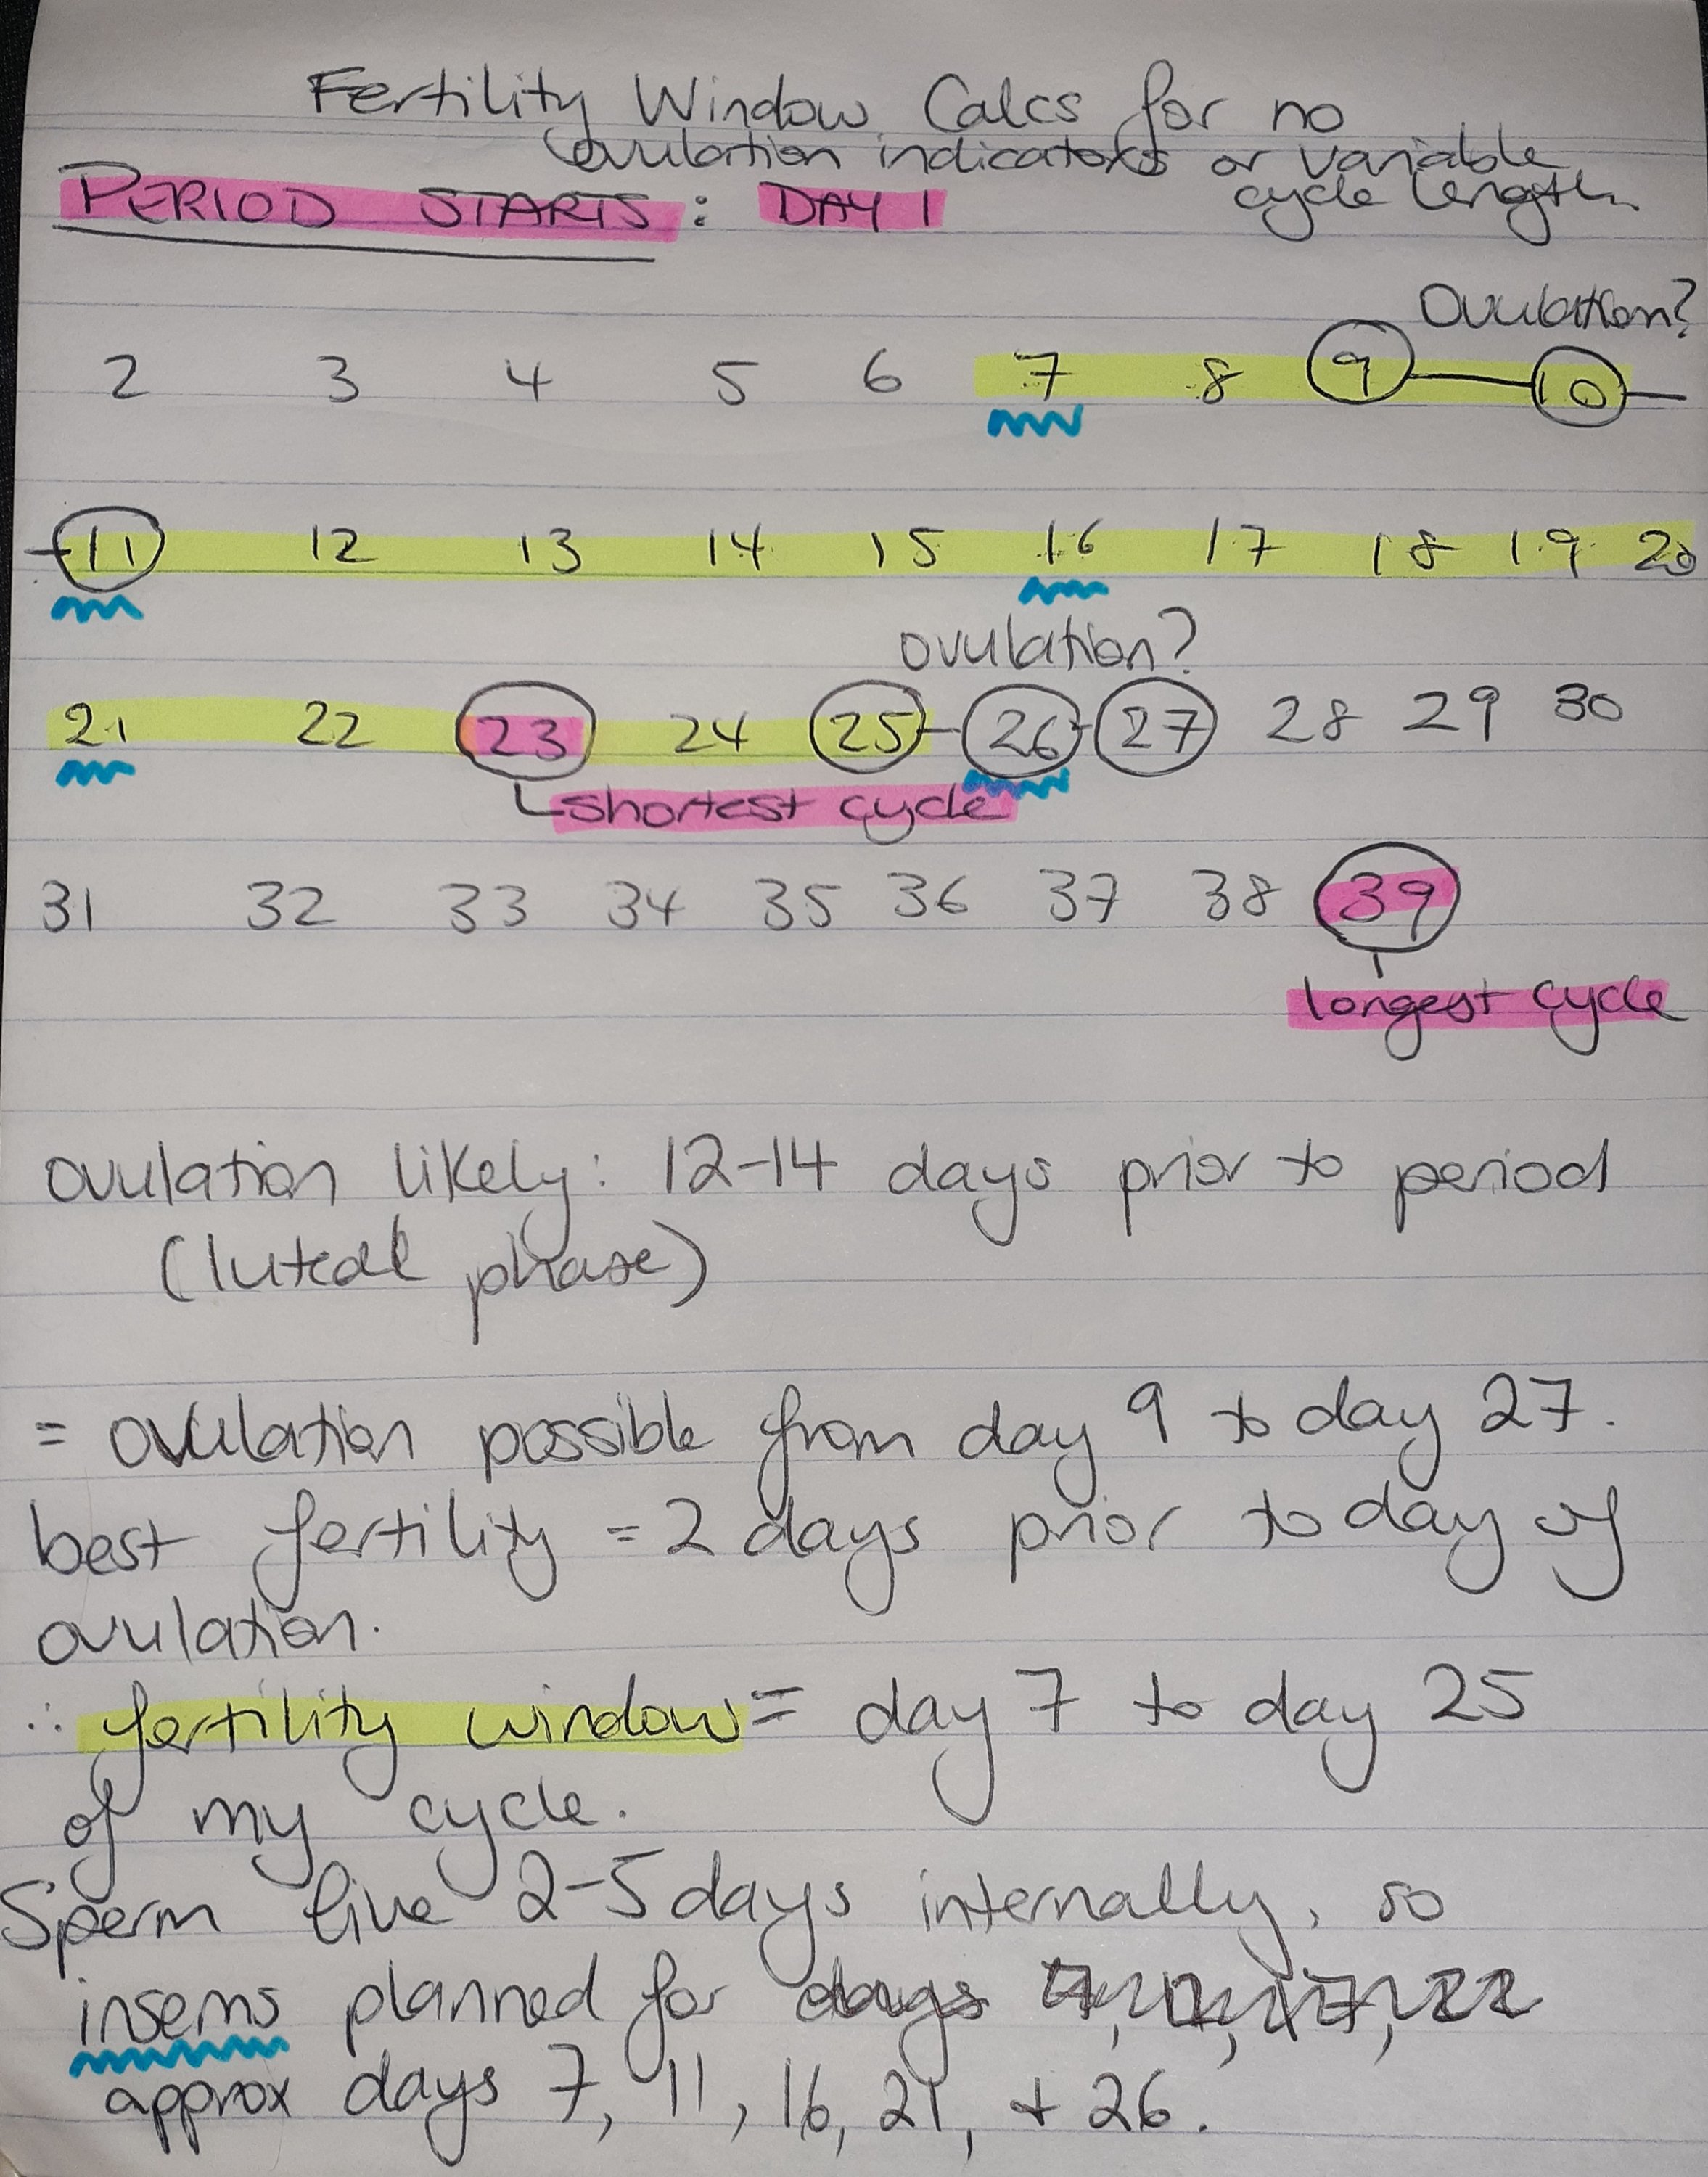 Fertility Window Calcs for no
ovulation indicators or variable
cycle length.
PERIOD STARTS: DAY 1
Ovulation?
2 3 4 5 6 7 8 9 10
11 12 13 14 15 16 17 18 19 20
ovulation?
21 22 23 24 25 26 27 28 29 30
shortest cycle
31 32 33 34 35 36 37 38 39
longest cycle
ovulation likely: 12-14 days prior to period
(luteal phase)
= ovulation possible from day 9 to day 27.
best fertility = 2 days prior to day of
ovulation.
∴ fertility window = day 7 to day 25
of my cycle.
Sperm live 2-5 days internally, so
insems planned for days 7, 12, 17, 22
approx days 7, 11, 16, 21, + 26.